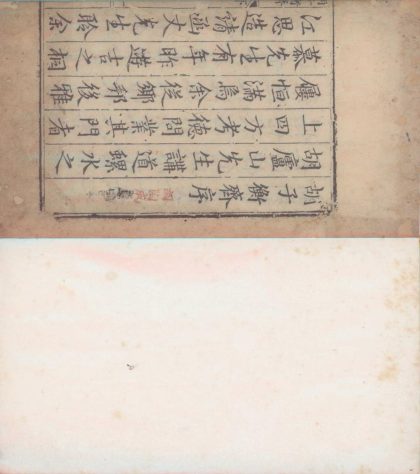 胡子衡齊序
胡廬山先生講道螺水之
上四方考德問業其門者
屨恒滿焉余從鄉鄒後雅
慕先生有年昨遊吉之桐
江思造請函丈先生聆余